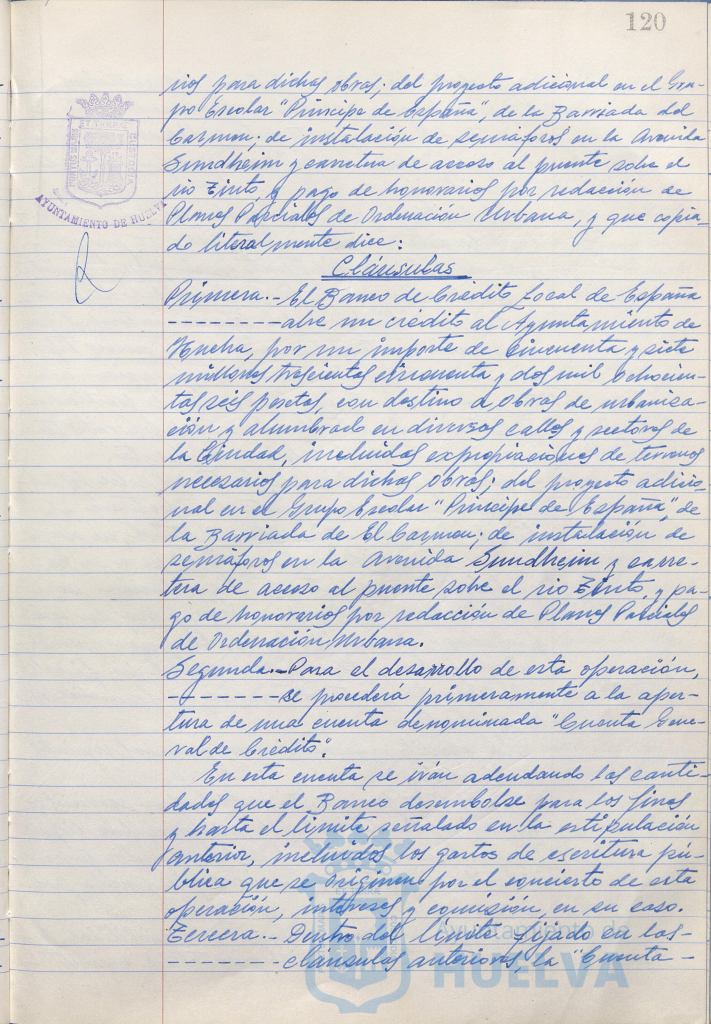 120
rios para dichas obras; del proyecto adicional en el Gru-
po Escolar "Príncipe de España", de la Barriada del
Carmen; de instalación de semáforos en la Avenida
Sundheim y carretera de acceso al puente sobre el
rio Tinto, y pago de honorarios por redacción de
Planes Parciales de Ordenación Urbana, y que copia-
do literalmente dice:
AYUNTAMIENTO DE HUELVA
Cláusulas
Primera.- El Banco de Crédito Local de España
-------- abre un crédito al Ayuntamiento de
Huelva, por un importe de cincuenta y siete
millones trescientas cincuenta y dos mil ochocien-
tas seis pesetas, con destino a obras de urbaniza-
ción y alumbrado en diversas calles y sectores de
la Ciudad, incluidas expropiaciones de terrenos
necesarios para dichas obras; del proyecto adicio-
nal en el Grupo Escolar "Príncipe de España", de
la Barriada de El Carmen; de instalación de
semáforos en la Avenida Sundheim y carre-
tera de acceso al puente sobre el rio Tinto, y pa-
go de honorarios por redacción de Planes Parciales
de Ordenación Urbana.
Segunda.- Para el desarrollo de esta operación,
-------- se procederá primeramente a la aper-
tura de una cuenta denominada "Cuenta Gene-
ral de Crédito".
En esta cuenta se irán adeudando las canti-
dades que el Banco desembolse para los fines
y hasta el límite señalado en la estipulación
anterior, incluidos los gastos de escritura pú-
blica que se originen por el concierto de esta
operación, intereses y comisión, en su caso.
Tercera.- Dentro del límite fijado en las-
-------- cláusulas anteriores, la "Cuenta -
Ayuntamiento de
HUELVA